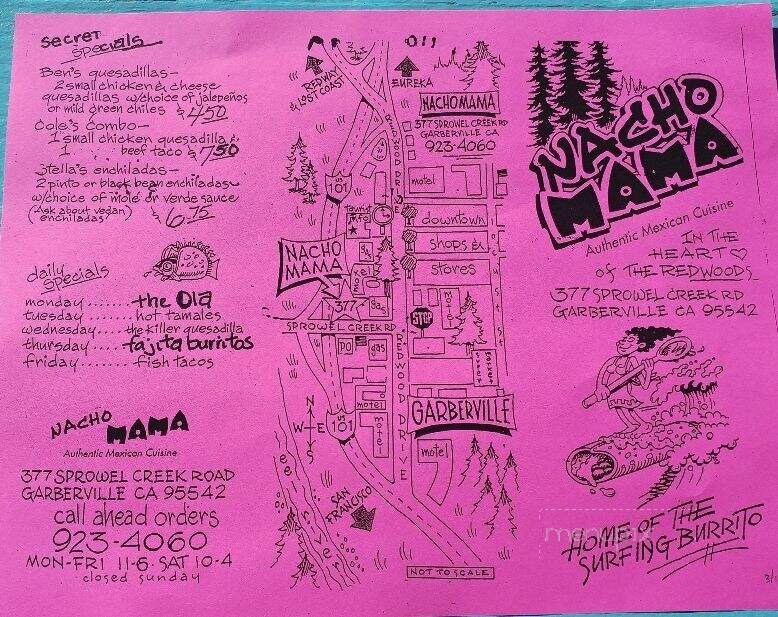 secret
specials
Ben's quesadillas—
2 small chicken & cheese
quesadillas w/choice of jalepeños
or mild green chiles $4.50
Cole's combo—
1 small chicken quesadilla &
1 beef taco $7.50
Stella's enchiladas—
2 pinto or black bean enchiladas
w/choice of molé or verde sauce
(Ask about vegan)
(enchiladas) $6.75
daily
specials
monday.......the Ola
tuesday.......hot tamales
wednesday....the killer quesadilla
thursday.....fajita burritos
friday.......fish tacos
NACHO MAMA
Authentic Mexican Cuisine
377 SPROWEL CREEK ROAD
GARBERVILLE CA 95542
call ahead orders
923-4060
MON-FRI 11-6. SAT 10-4
closed sunday
REDWAY
& LOST COAST
EUREKA
NACHO MAMA
377 SPROWEL CREEK RD
GARBERVILLE CA
923-4060
US
101
REDWOOD DRIVE
motel
tourist
info
downtown
shops &
stores
LOCUST ST
NACHO
MAMA
motel
gas
377
gas
STOP
SPROWEL CREEK RD
PO
gas
REDWOOD DRIVE
motel
US
101
motel
GARBERVILLE
motel
N
W E
S
SAN
FRANCISCO
eel river
NOT TO SCALE
NACHO
MAMA
Authentic Mexican Cuisine
IN THE
HEART
of THE REDWOODS
377 SPROWEL CREEK RD
GARBERVILLE CA 95542
HOME OF THE
SURFING BURRITO